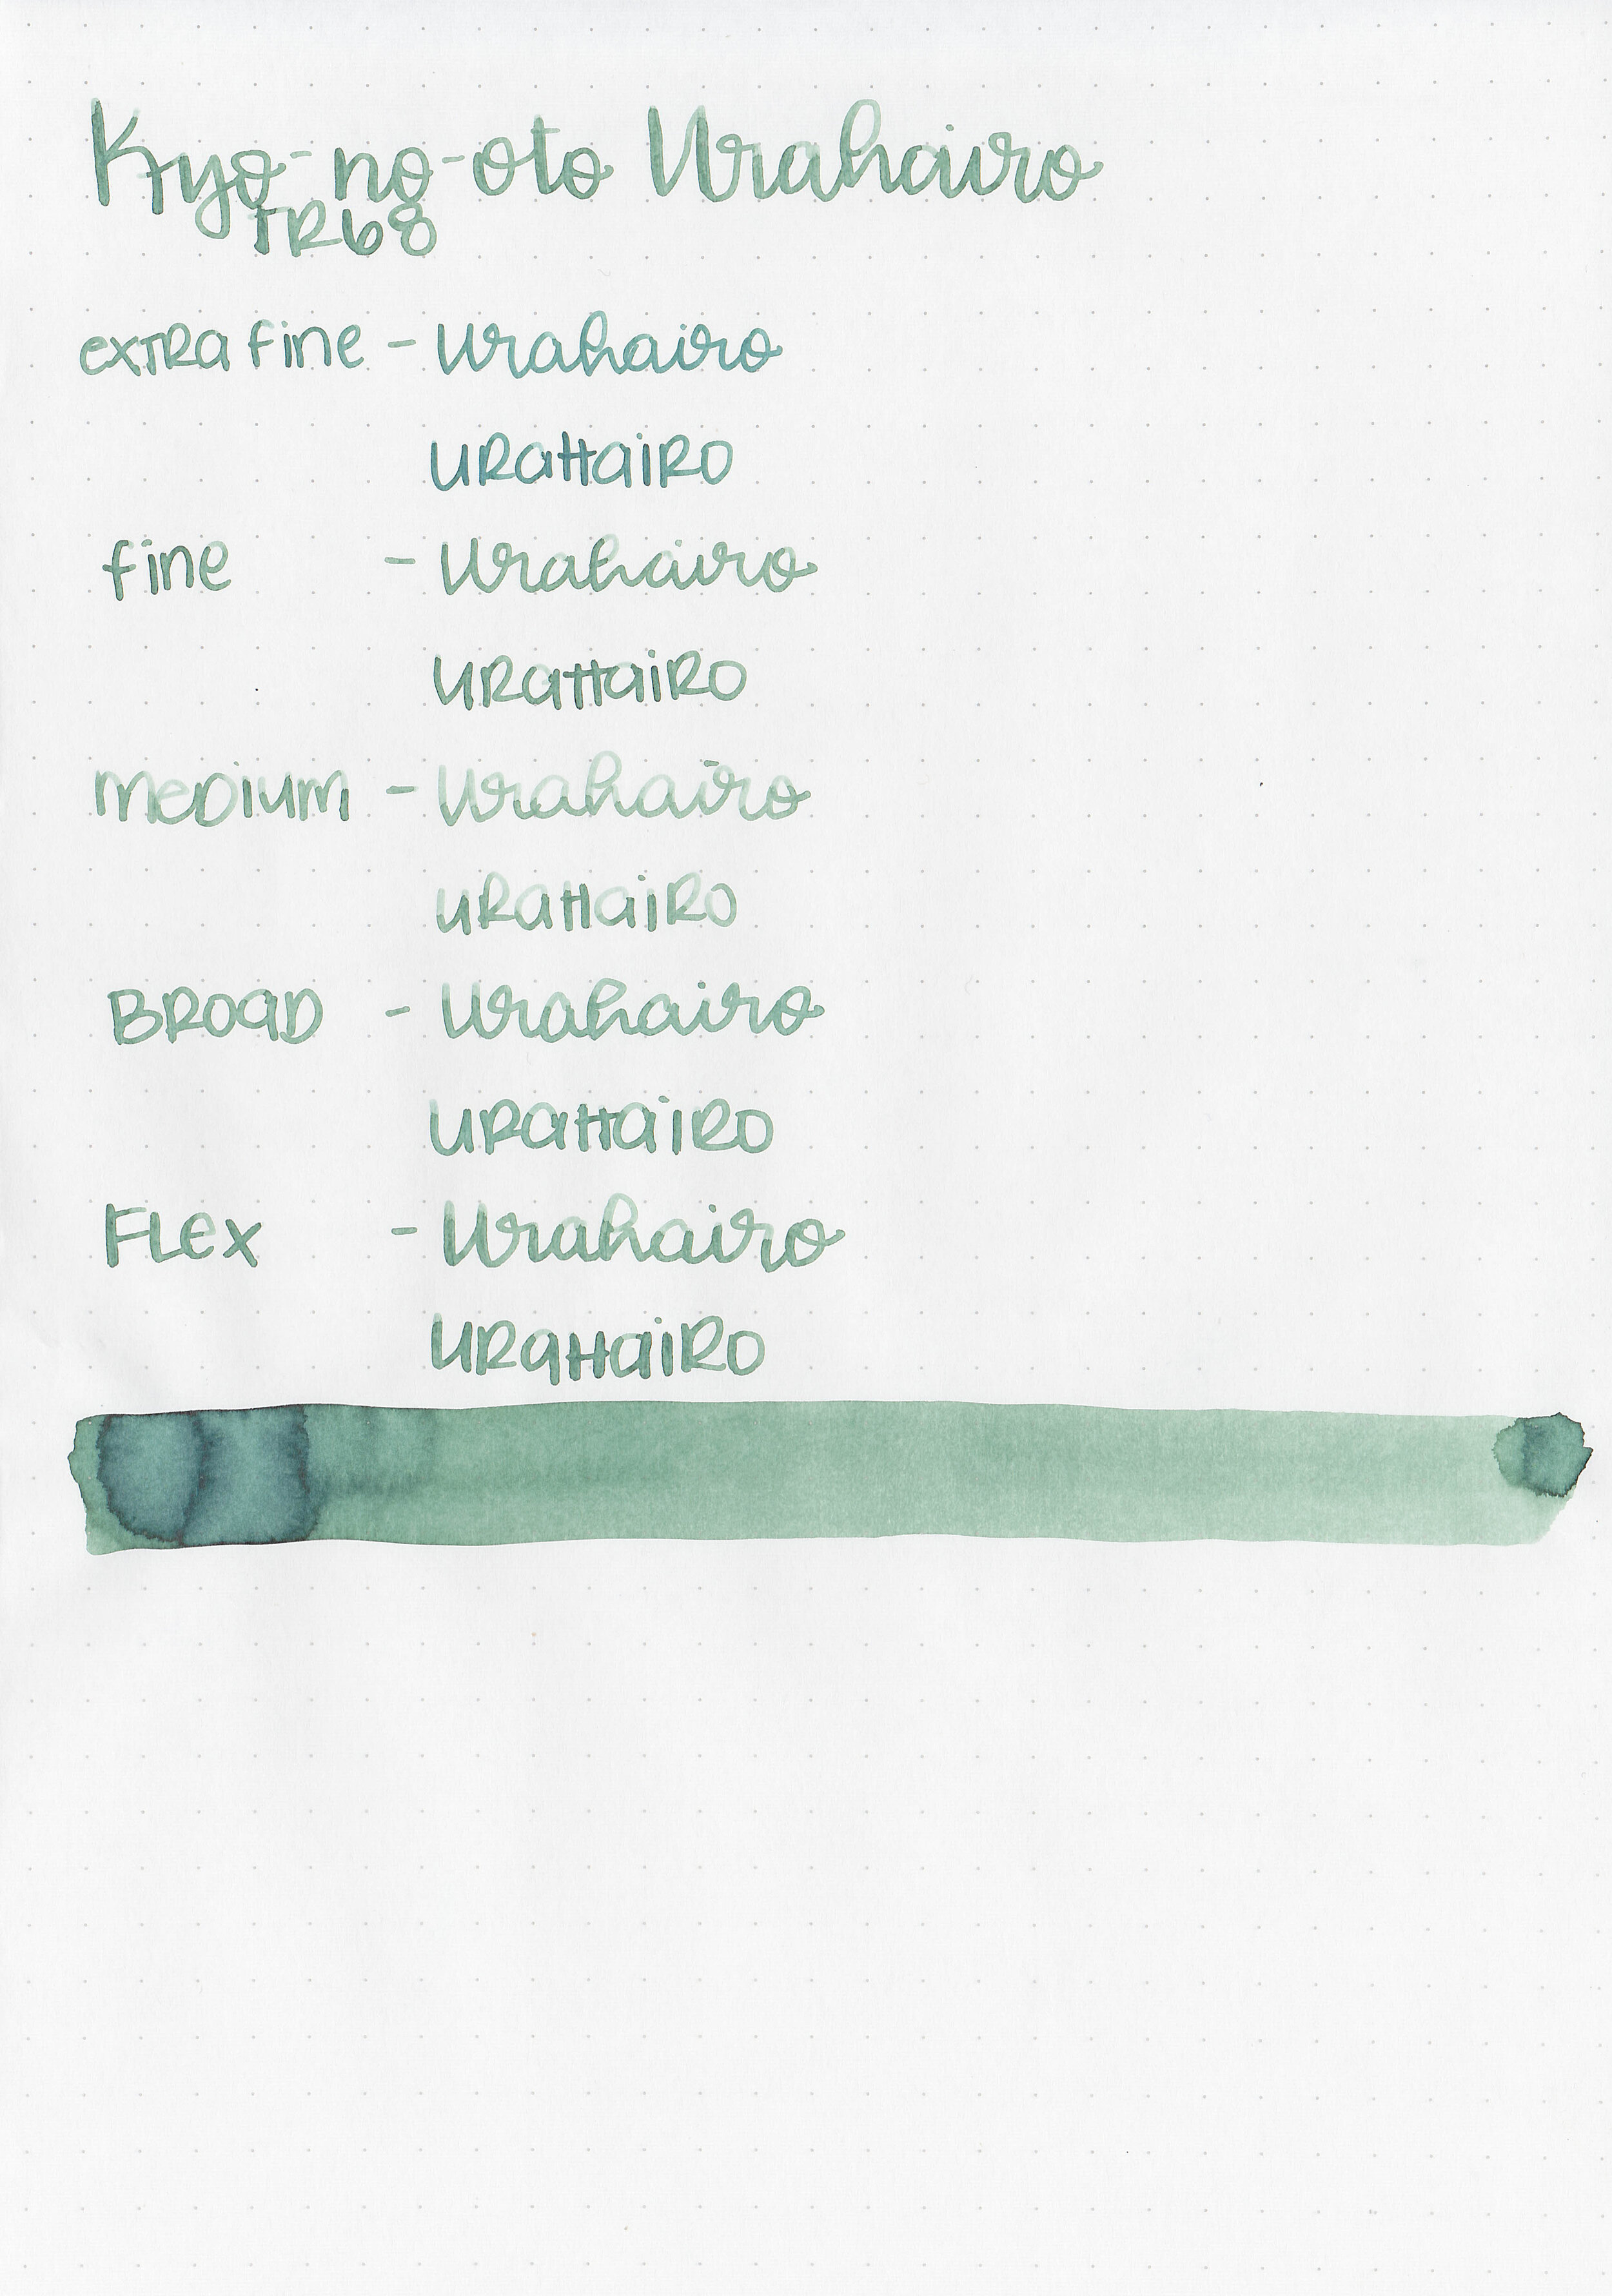 Kyo-no-oto Urahairo
TR68
extra fine - Urahairo
URaHaiRO
fine - Urahairo
URaHaiRO
MeDium - Urahairo
URaHaiRO
BROaD - Urahairo
URaHaiRO
FLex - Urahairo
URaHaiRO